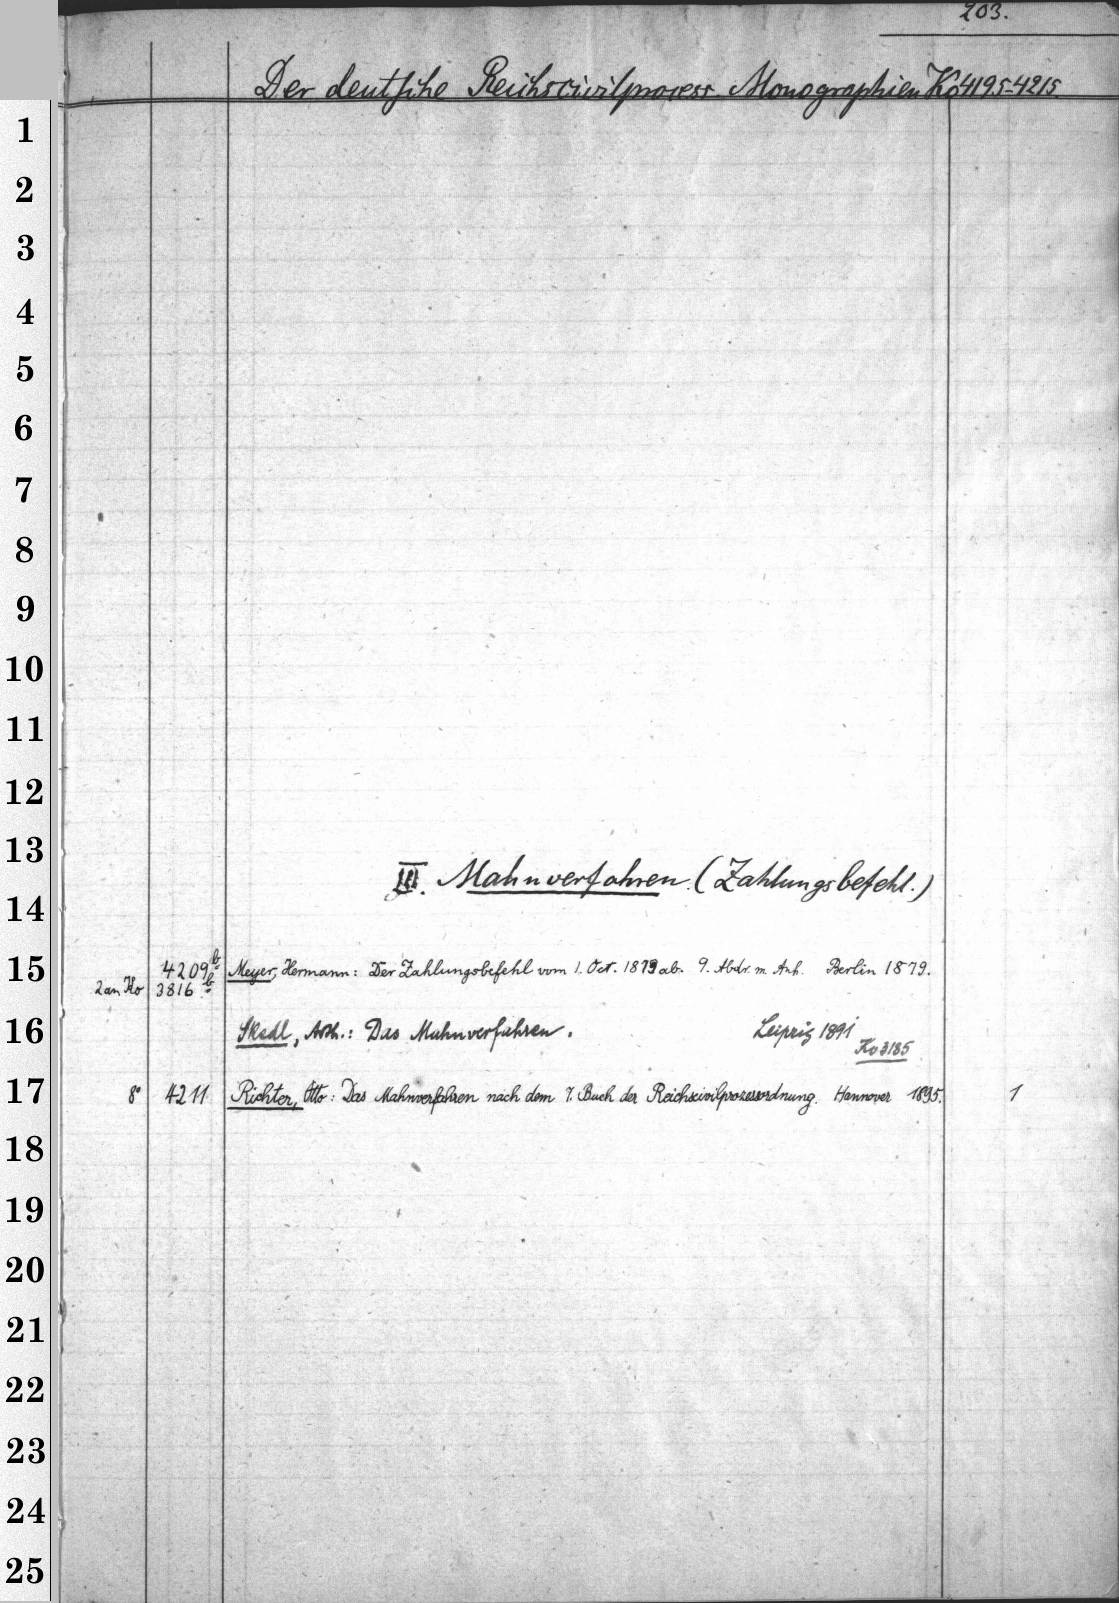 203.
Der deutsche Reichscivilprocess. Monographien Ko 4195-4215.
1
2
3
4
5
6
7
8
9
10
11
12
13
III. Mahnverfahren. (Zahlungsbefehl.)
14
15 4209b Meyer, Hermann: Der Zahlungsbefehl vom 1. Oct. 1879 ab. 9. Abdr. m. Anh. Berlin 1879.
2 an Ko 3816b
16 Skedl, Arth.: Das Mahnverfahren. Leipzig 1891
Ko 3185
17 8° 4211 Richter, Otto: Das Mahnverfahren nach dem 7. Buch der Reichscivilprozessordnung. Hannover 1895. 1
18
19
20
21
22
23
24
25